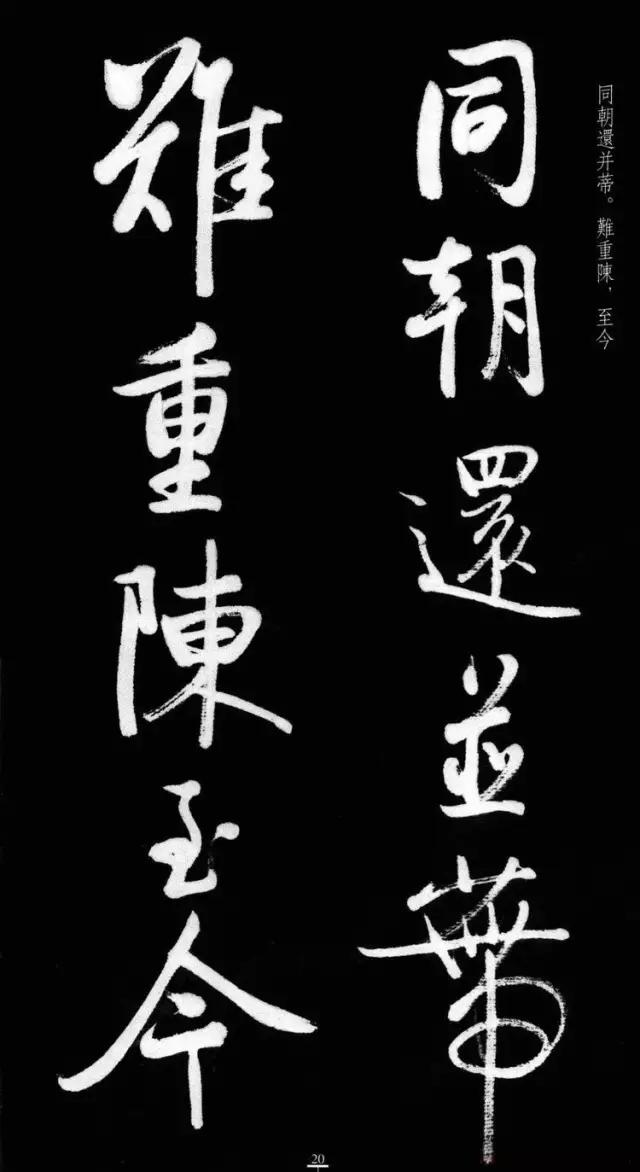 同朝還并蒂。難重陳，至今
同朝還並蔕
難重陳至今
20